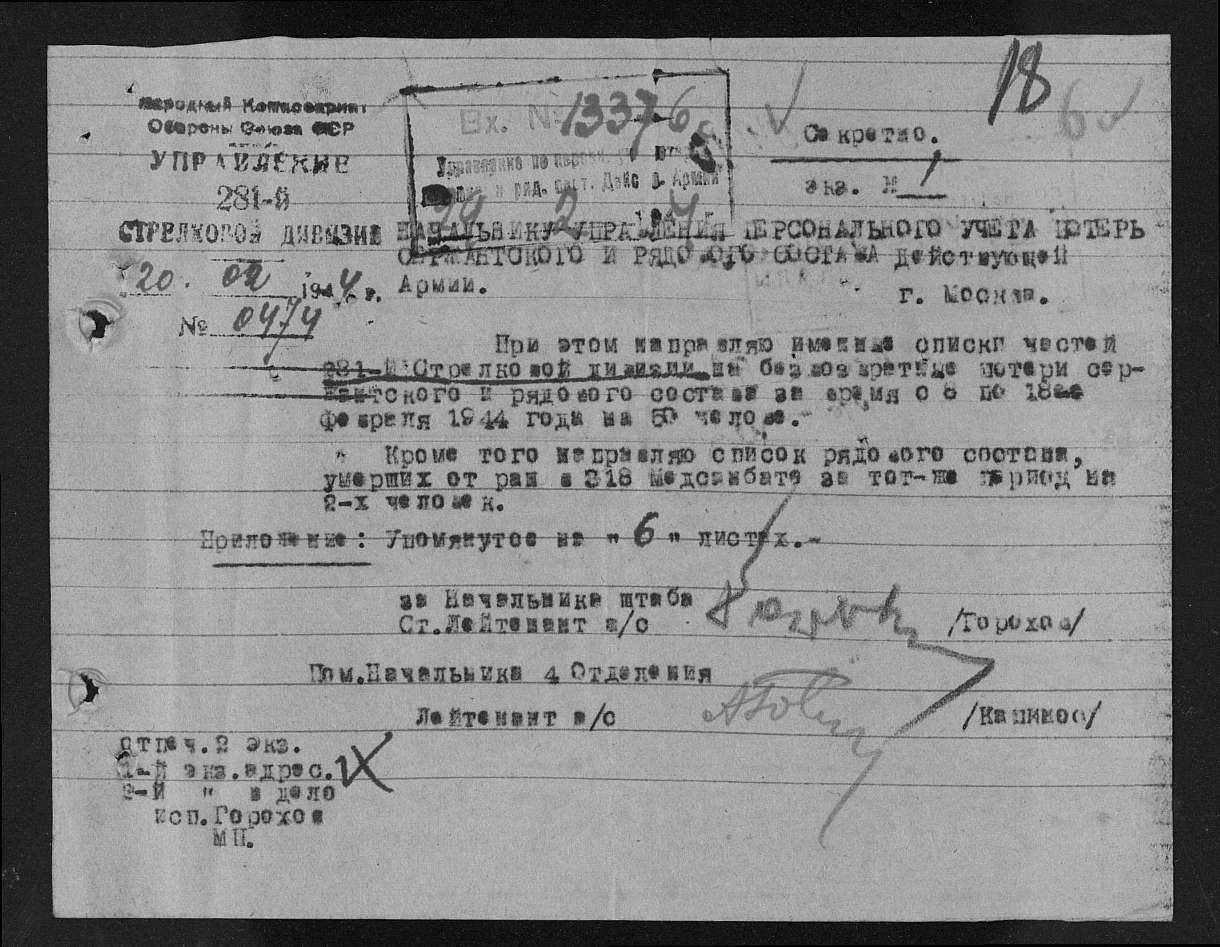 18
6
Народный Комиссариат
Обороны Союза ССР
УПРАВЛЕНИЕ
281-й
СТРЕЛКОВОЙ ДИВИЗИИ
20. 02 1944 г.
№ 0474
Вх. № 13376
Управление по персон.
и ряд. сост. Дейс. Армии
29 2 1944 г.
Секретно.
экз. № 1
НАЧАЛЬНИКУ УПРАВЛЕНИЯ ПЕРСОНАЛЬНОГО УЧЕТА ПОТЕРЬ
СЕРЖАНТСКОГО И РЯДОВОГО СОСТАВА Действующей
Армии.
г. Москва.
При этом направляю именные списки частей
281-й Стрелковой дивизии на безвозвратные потери сер-
жантского и рядового состава за время с 8 по 18-ое
февраля 1944 года на 50 челове.-
Кроме того направляю список рядового состава,
умерших от ран в 318 Медсанбате за тот-же период на
2-х человек.
Приложение: Упомянутое на "6" листах.-
за Начальника штаба
Ст.Лейтенант а/с /Горохов/
Пом.Начальника 4 Отделения
Лейтенант а/с /Капинос/
отпеч.2 экз.
1-й экз.адрес.
2-й " в дело
исп.Горохов
МП.